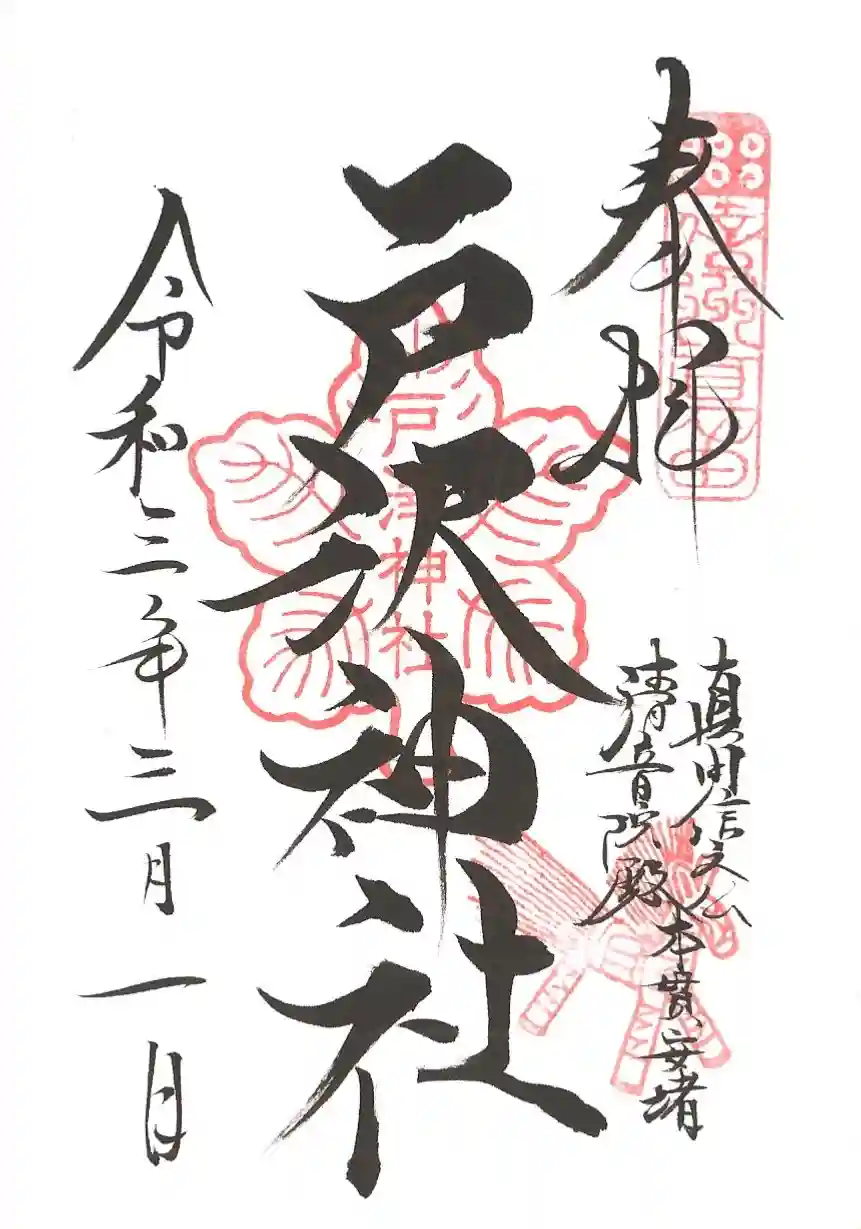 奉拝
真田信之公本貫安堵
清音院殿
戸沢神社
戸澤神社
令和三年三月一日